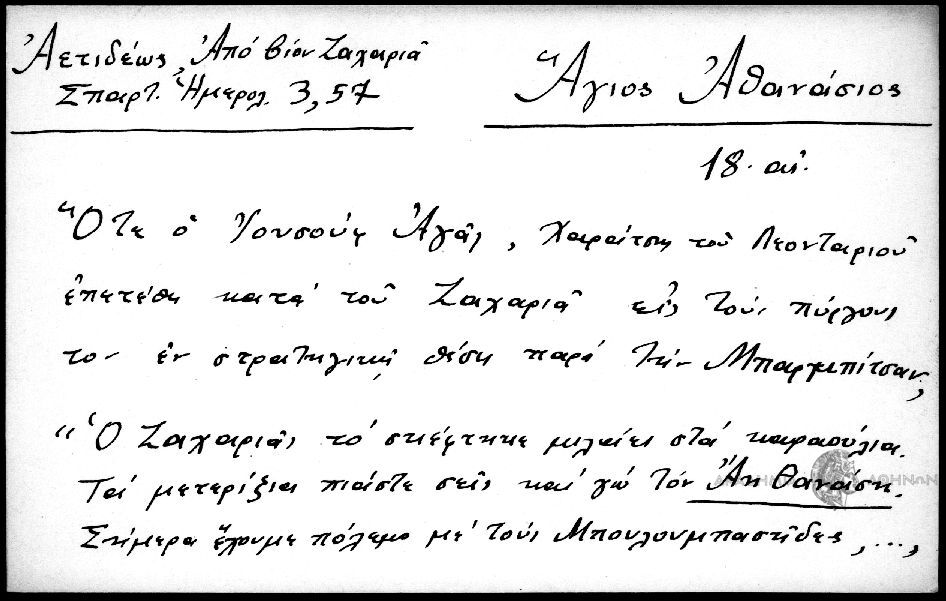 Ἀετιδέως, Ἀπό βίον Ζαχαριᾶ
Σπαρτ. Ἡμερολ. 3, 57
Ἅγιος Ἀθανάσιος
18. αἰ.
"Ὅτε ὁ Ἰουσούφ Ἀγᾶς, Χαράτσης τοῦ Λεονταριοῦ
ἐπετέθη κατά τοῦ Ζαχαριᾶ εἰς τούς πύργους
του ἐν στρατηγικῇ θέσει παρά τήν Μπαρμπίτσαν,
"Ὁ Ζαχαριᾶς τό σκέφτηκε μιλάει στά καραούλια.
Τά μετερίζια πιάστε σεῖς καί γώ τόν Ἅη Θανάση.
Σήμερα ἔχουμε πόλεμο μέ τούς Μπουλουμπασῆδες, ...,